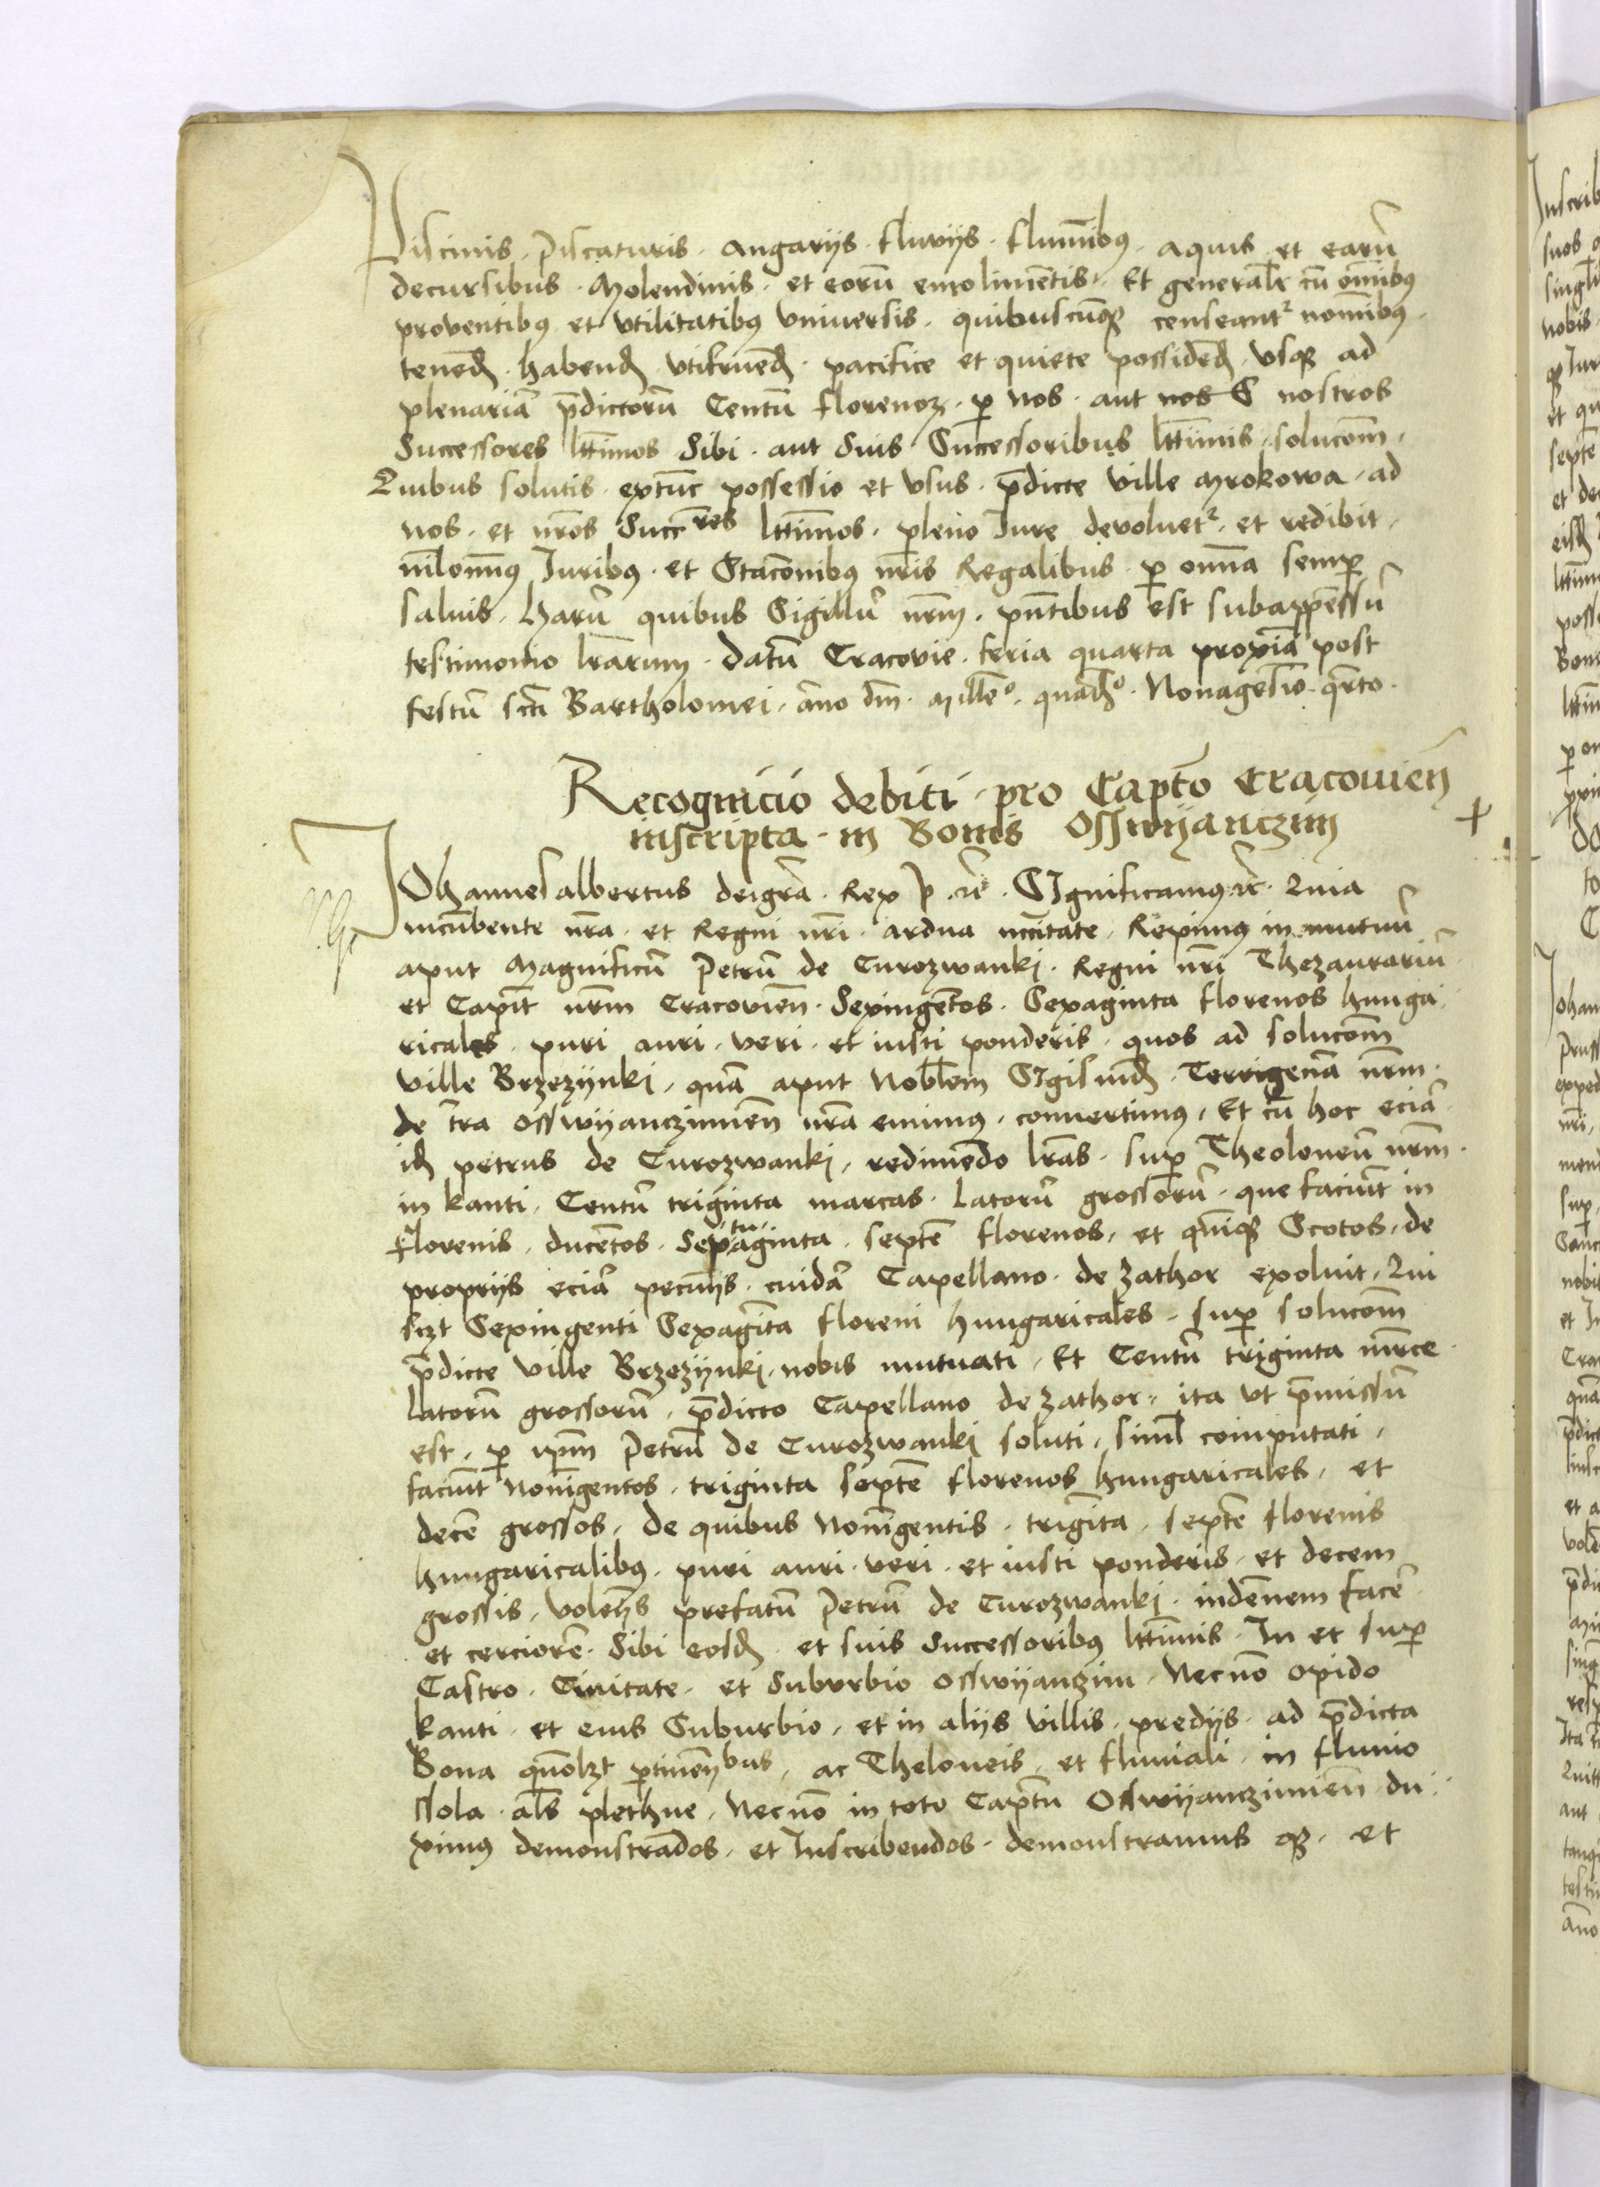 Piscinis . Piscaturis . Angariis . fluviis . fluminibus . aquis et earum
decursibus . Molendinis . et eorum emolimentis . Et generaliter cum omnibus
proventibus et utilitatibus universis . quibuscunque censeantur nominibus .
tenend . habend . utifruend . pacifice et quiete possidend . usque ad
plenariam predictorum Centum florenorum . per nos . aut nos S nostros
Successores legittimos Sibi . aut Suis Successoribus legittimis . solucionem .
Quibus solutis . extunc possessio et usus . predicte ville Mrokowa . ad
nos . et nostros Successores legittimos . pleno Jure devoluetur . et redibit .
nihilominus Juribus . et Stacionibus nostris Regalibus . per omnia semper
salvis . Harum quibus Sigillum nostrum . presentibus est subappensum
testimonio literarum . Datum Cracovie . feria quarta proxima post
festum sancti Bartholomei . anno domini . Mille° . quadr° . Nonagesimo . quarto .
Recognicio debiti . pro Capitaneo Cracovien
inscripta . in Bonis Osswyanczim
Johannes albertus dei gracia . Rex P . etc . Significamus etc . Quia
incumbente nostra . et Regni nostri . ardua necessitate . Recepimus in mutuum
aput Magnificum Petrum de Curozwanki . Regni nostri Thezaurarium .
et Capit nostrum Cracovien . Sexingentos . Sexaginta florenos hunga
ricales . puri auri . veri . et iusti ponderis . quos ad solucionem
ville Brzezynki . quam aput Nobilem Sigismund . Terrigenam nostrum .
de terra osswyanczimien nostra emimus . convertimus . Et cum hoc eciam
idem petrus de Curozwanki . redimendo literas . super Theoloneum nostrum .
in kanti . Centum triginta marcas . latorum grossorum . que faciunt in
florenis . ducentos . Septuaginta . septem florenos . et quinque Scotos . de
propriis eciam pecuniis . cuidam Capellano . de zathor exoluit . Qui
scilicet Sexingenti Sexaginta floreni hungaricales . super solucionem
predicte ville Brzezynki . nobis mutuati . Et Centum triginta marce .
latorum grossorum . predicto Capellano de zathor . ita ut premissum
est . per ipsum Petrum de Curozwanki soluti . simul computati .
faciunt Noningentos . triginta septem florenos hungaricales . et
decem grossos . de quibus Noningentis . triginta . septem florenis
hungaricalibus . puri auri . veri . et iusti ponderis . et decem
grossis . volentes prefatum Petrum de Curozwanki . indemnem facere .
et cerciorem . Sibi eosdem . et suis Successoribus legittimis . In et super
Castro . Civitate . et Suburbio osswyanzim . Necnon opido
kanti . et eius Suburbio . et in aliis villis . prediis . ad predicta
Bona quomodolibet pertinentibus . ac Theloneis . et fluviali . in fluvio
ssola . alias plethne . Necnon in toto Capitaneatu Osswyanczimien du
ximus demonstrandos . et Inscribendos . demonstramus que . et